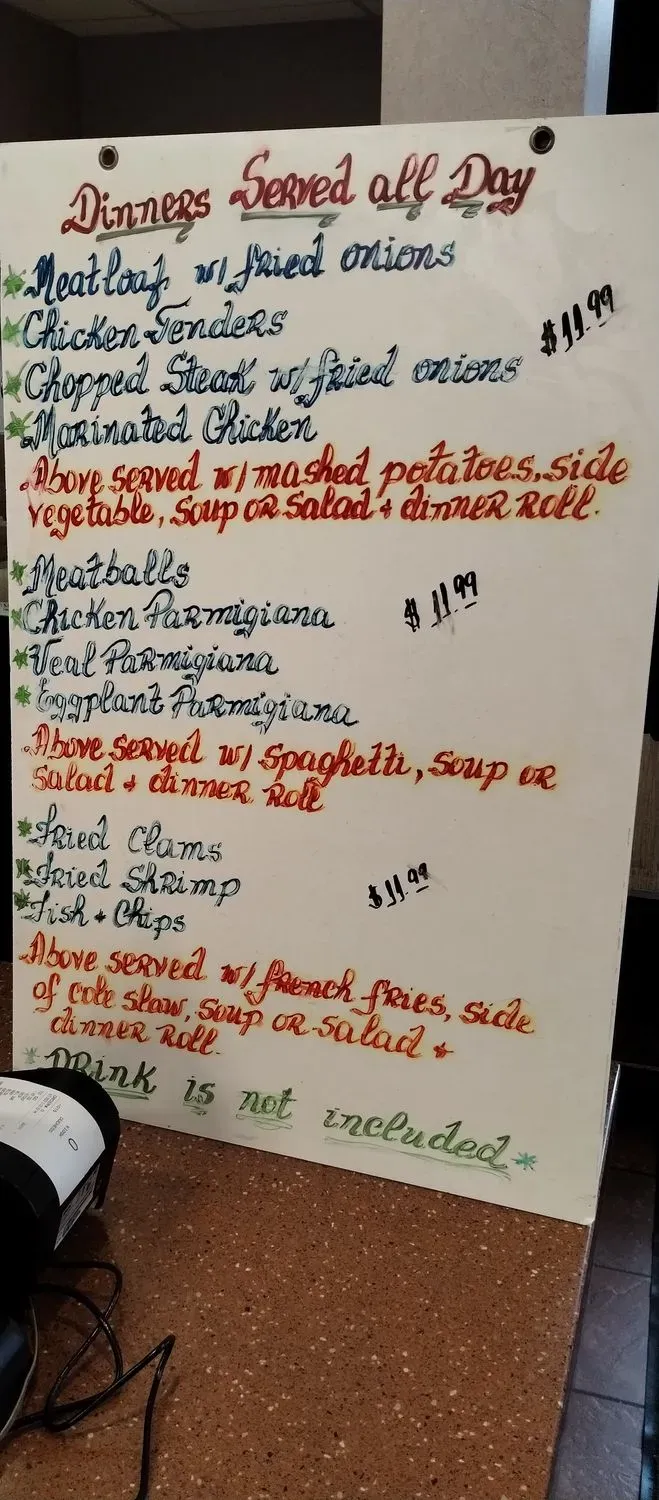 Dinners Served all Day
Meatloaf w/ fried onions
Chicken Tenders
$11.99
Chopped Steak w/ fried onions
Marinated Chicken
Above served w/ mashed potatoes, side
vegetable, soup or salad + dinner roll.
Meatballs
Chicken Parmigiana
$11.99
Veal Parmigiana
Eggplant Parmigiana
Above served w/ spaghetti, soup or
salad + dinner roll
Fried Clams
Fried Shrimp
$11.99
Fish + Chips
Above served w/ french fries, side
of cole slaw, soup or salad +
dinner roll.
*Drink is not included*